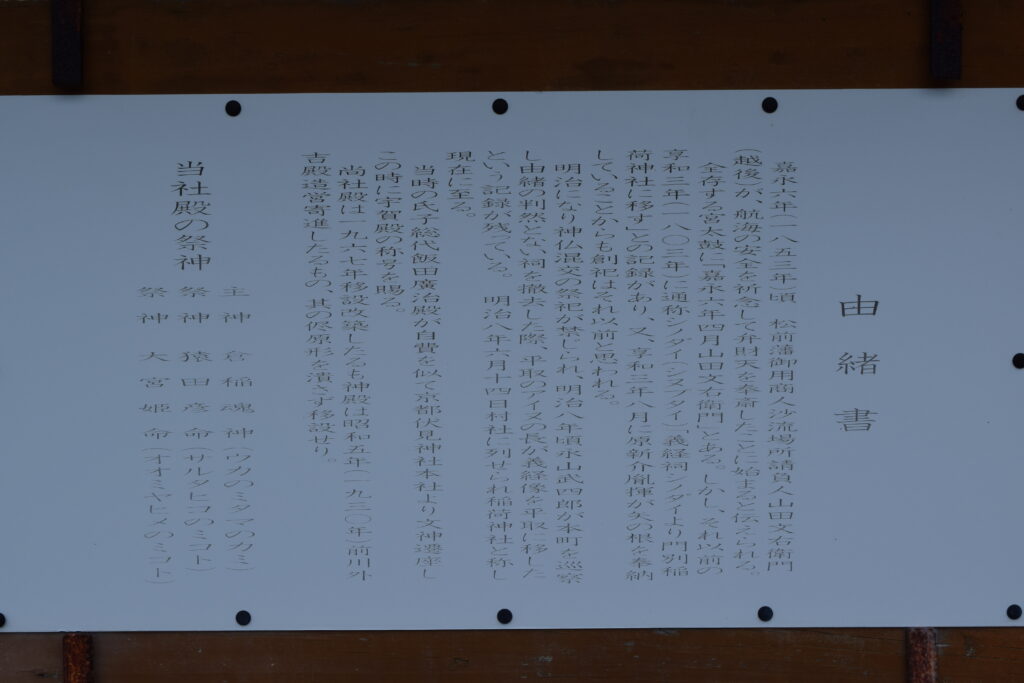 由緒書
嘉永六年(一八五三年)頃　松前藩御用商人沙流場所請負人山田文右衛門
(越後)が、航海の安全を祈念して弁財天を奉斎したことに始まると伝えられる。
全存する宮太鼓に「嘉永六年四月山田文右衛門」とある。しかし、それ以前の
享和三年(一八〇三年)に通称シノダイ(シスプタイ)義経祠シノダイより門別稲
荷神社に移す」との記録があり、又、享和三年八月に原新介胤揮が矢の根を奉納
していることからも創祀はそれ以前と思われる。
明治になり神仏混交の祭祀が禁じられ、明治八年頃永山武四郎が本町を巡察
し由緒の判然とない祠を撤去した際、平取のアイヌの長が義経像を平取に移した
という記録が残っている。　明治八年六月十四日村社に列せられ稲荷神社と称し
現在に至る。
当時の氏子総代飯田廣治殿が自費を似て京都伏見神社本社より文神遷座し
この時に宇賀殿の称号を賜る。
尚社殿は一九六七年移設改築したるも神殿は昭和五年(一九三〇年)前川外
吉殿造営寄進したるもの、其の侭原形を潰さず移設せり。
当社殿の祭神
主神　倉稲魂神(ウカのミタマのカミ)
祭神　猿田彦命(サルタヒコのミコト)
祭神　大宮姫命(オオミヤヒメのミコト)